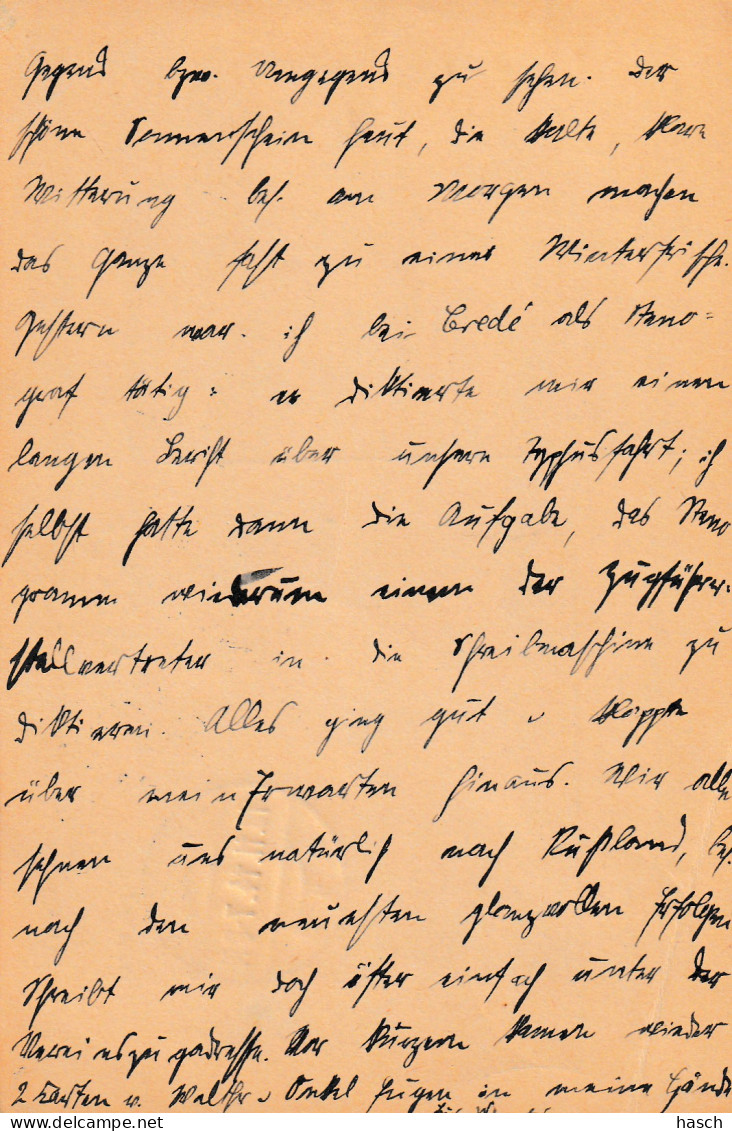 Gegend bzw. Umgegend zu sehen. Der
schöne Sonnenschein heut, die kalte, klare
Witterung bes. am Morgen machen
das Ganze fast zu einer Winterfrische.
Gestern war ich bei Credé als Steno=
graf tätig: er diktierte mir einen
langen Bericht über unsere Typhusfahrt; ich
selbst hatte dann die Aufgabe, das Steno
gramm wiederum einem der Zugführer-
stellvertreter in die Schreibmaschine zu
diktieren. Alles ging gut u klappte
über mein Erwarten hinaus. Wir alle
sehnen uns natürlich nach Rußland, bes.
nach den neuesten glanzvollen Erfolgen
Schreibt mir doch öfter einfach unter der
Vereinszugadresse. Vor kurzem kamen wieder
2 Karten v. Walthr u Onkel Eugen in meine Hände
hasch